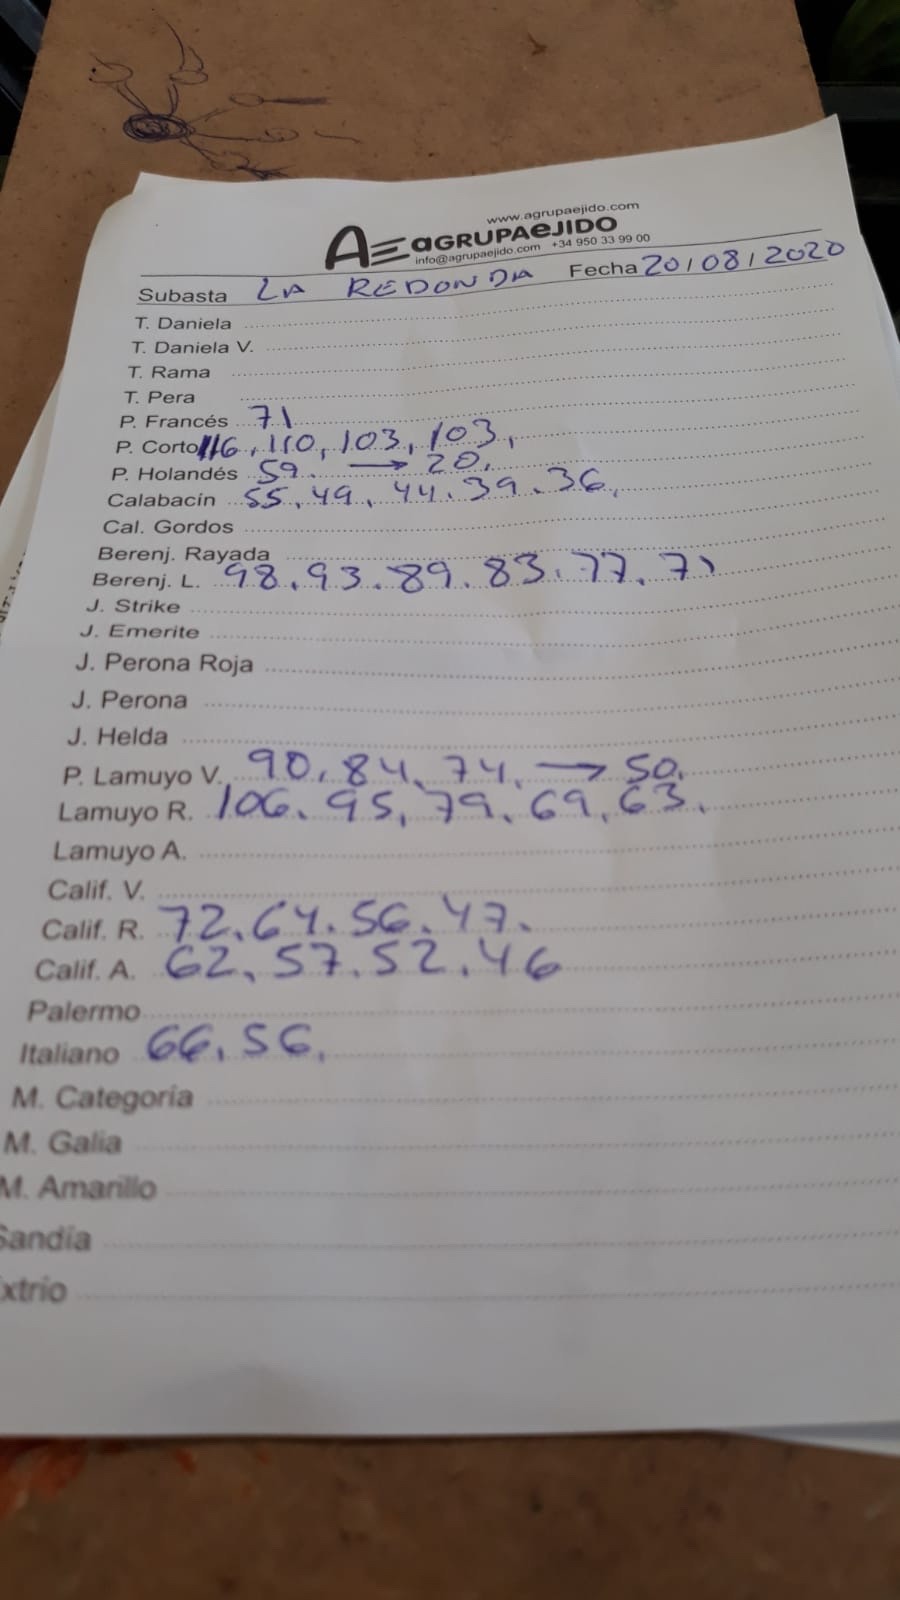 www.agrupaejido.com
AE aGRUPAeJIDO
info@agrupaejido.com +34 950 33 99 00
Subasta LA REDONDA Fecha 20/08/2020
T. Daniela
T. Daniela V.
T. Rama
T. Pera
P. Francés 71
P. Corto 116, 110, 103, 103,
P. Holandés 59. → 20.
Calabacín 55, 49, 44. 39. 36,
Cal. Gordos
Berenj. Rayada
Berenj. L. 98. 93. 89. 83. 77. 71
J. Strike
J. Emerite
J. Perona Roja
J. Perona
J. Helda
P. Lamuyo V. 90, 84, 74, → 50.
Lamuyo R. 106, 95, 79, 69, 63,
Lamuyo A.
Calif. V.
Calif. R. 72, 64. 56. 47.
Calif. A. 62, 57. 52. 46
Palermo
Italiano 66, 56,
M. Categoría
M. Galia
M. Amarillo
Sandía
xtrio